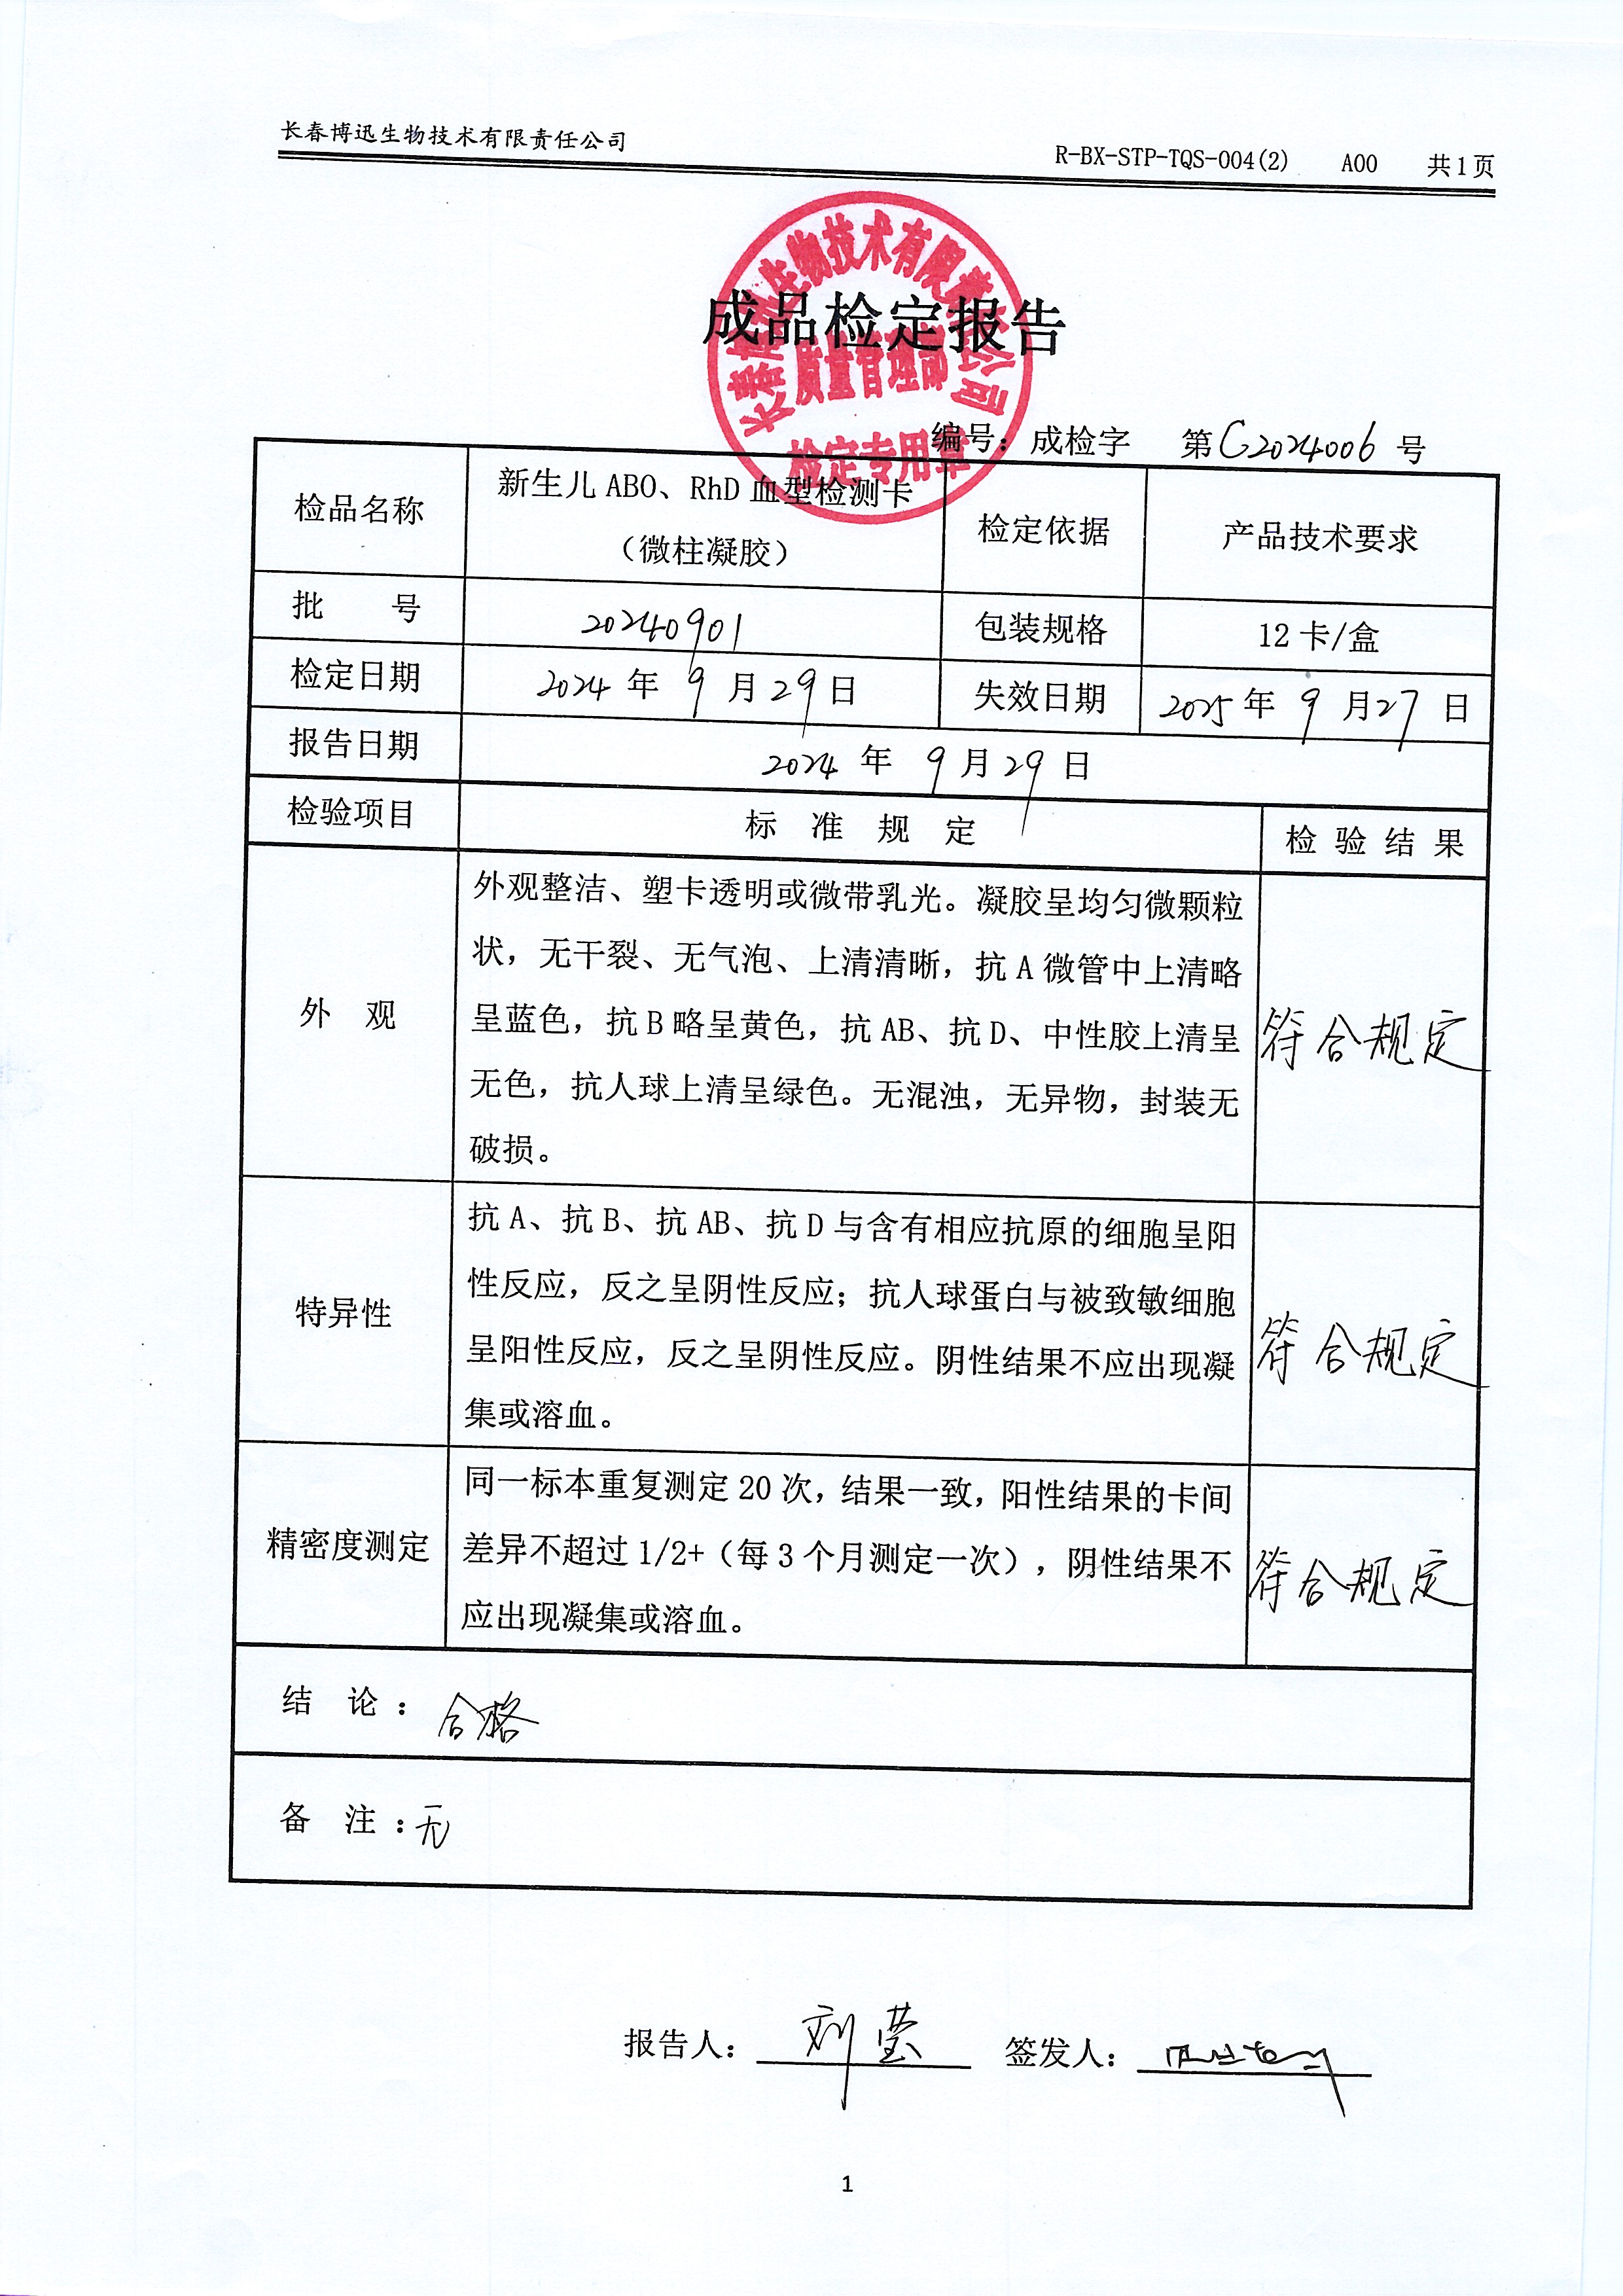 长春博迅生物技术有限责任公司
R-BX-STP-TQS-004(2) A00 共1页
长春博迅生物技术有限责任公司
质量管理部
检定专用章
成品检定报告
编号：成检字 第G2024006号
检品名称 新生儿ABO、RhD血型检测卡
（微柱凝胶） 检定依据 产品技术要求
批 号 20240901 包装规格 12卡/盒
检定日期 2024年9月29日 失效日期 2025年9月27日
报告日期 2024年9月29日
检验项目 标准规定 检验结果
外 观
外观整洁、塑卡透明或微带乳光。凝胶呈均匀微颗粒
状，无干裂、无气泡、上清清晰，抗A微管中上清略
呈蓝色，抗B略呈黄色，抗AB、抗D、中性胶上清呈
无色，抗人球上清呈绿色。无混浊，无异物，封装无
破损。
符合规定
特异性
抗A、抗B、抗AB、抗D与含有相应抗原的细胞呈阳
性反应，反之呈阴性反应；抗人球蛋白与被致敏细胞
呈阳性反应，反之呈阴性反应。阴性结果不应出现凝
集或溶血。
符合规定
精密度测定
同一标本重复测定20次，结果一致，阳性结果的卡间
差异不超过1/2+（每3个月测定一次），阴性结果不
应出现凝集或溶血。
符合规定
结 论：合格
备 注：无
报告人：刘莹 签发人：
1